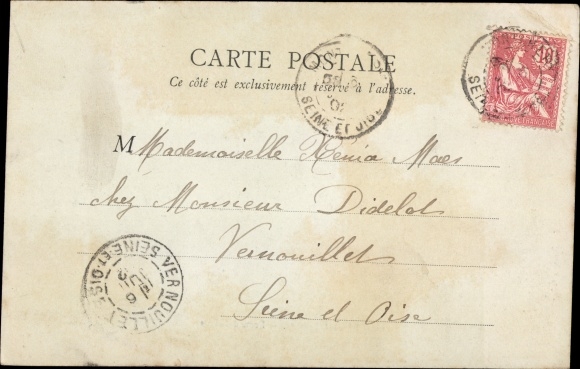 CARTE POSTALE
Ce côté est exclusivement réservé à l'adresse.
M Mademoiselle Renia Maes
chez Monsieur Didelot
Vernouillet
Seine et Oise
SEINE ET OISE
VERNOUILLET
SEINE-ET-OISE
10